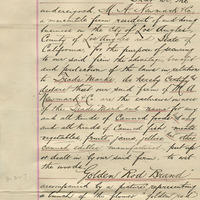 undersigned, M. A. Newmark & Co.
a mercantile firm resident of and doing
business in the City of Los Angeles
County of Los Angeles State of
California, for the purpose of securing
to our said firm the advantage, benefit
and protection of the laws in relation
to Trade Marks, do hereby certify &
declare that our said firm of M. A.
Newmark & Co. are the exclusive owners
of the Trade Mark and name for any
and all kinds of Canned foods and
any and all kinds of Canned fish meats
vegetables, fruits, jams, jellies & other
canned edibles manufactured, put up
or dealt in by our said firm, to wit
the words
"Golden Rod Brand
accompanied by a picture representing
a bunch of the flower golden rod